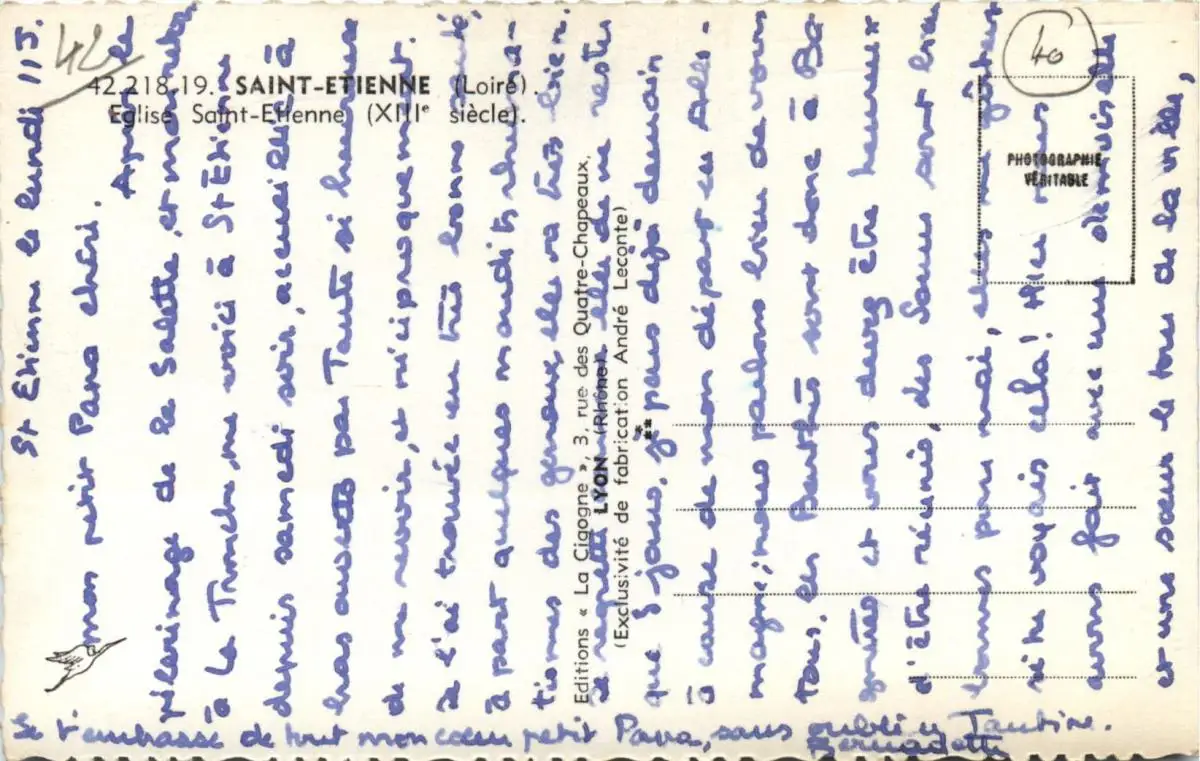 42
40
42.218.19. SAINT-ETIENNE (Loire).
Eglise Saint-Etienne (XIIIe siècle).
PHOTOGRAPHIE
VÉRITABLE
Editions « La Cigogne », 3, rue des Quatre-Chapeaux,
LYON (Rhône)
(Exclusivité de fabrication André Leconte)
St Etienne le lundi 11 J.
mon petit Papa chéri. Après le
pélerinage de la Salette, et mon retour
à La Tronche, me voici à St Etienne
depuis samedi soir, accueillie à
bras ouverts par Tante si heureuse
de me revoir, et réciproquement.
Je l'ai trouvée en très bonne santé,
à part quelques maudits rhuma-
tismes des genoux, elle va très bien.
Je regrette comme elle de ne rester
que 8 jours, je pars déjà demain
à cause de mon départ en Alle-
magne; nous parlons bien de vous
tous. Les Barthés sont donc à Ba
et vous devez être heureux
d'être réunis, des Soeurs sont bien
bonnes pour moi, elles me gâtent
si tu voyais cela! Hier nous
avons fait avec une demoiselle
et une soeur le tour de la ville,
Je t'embrasse de tout mon coeur petit Papa, sans oublier Tantine.
Bernadette